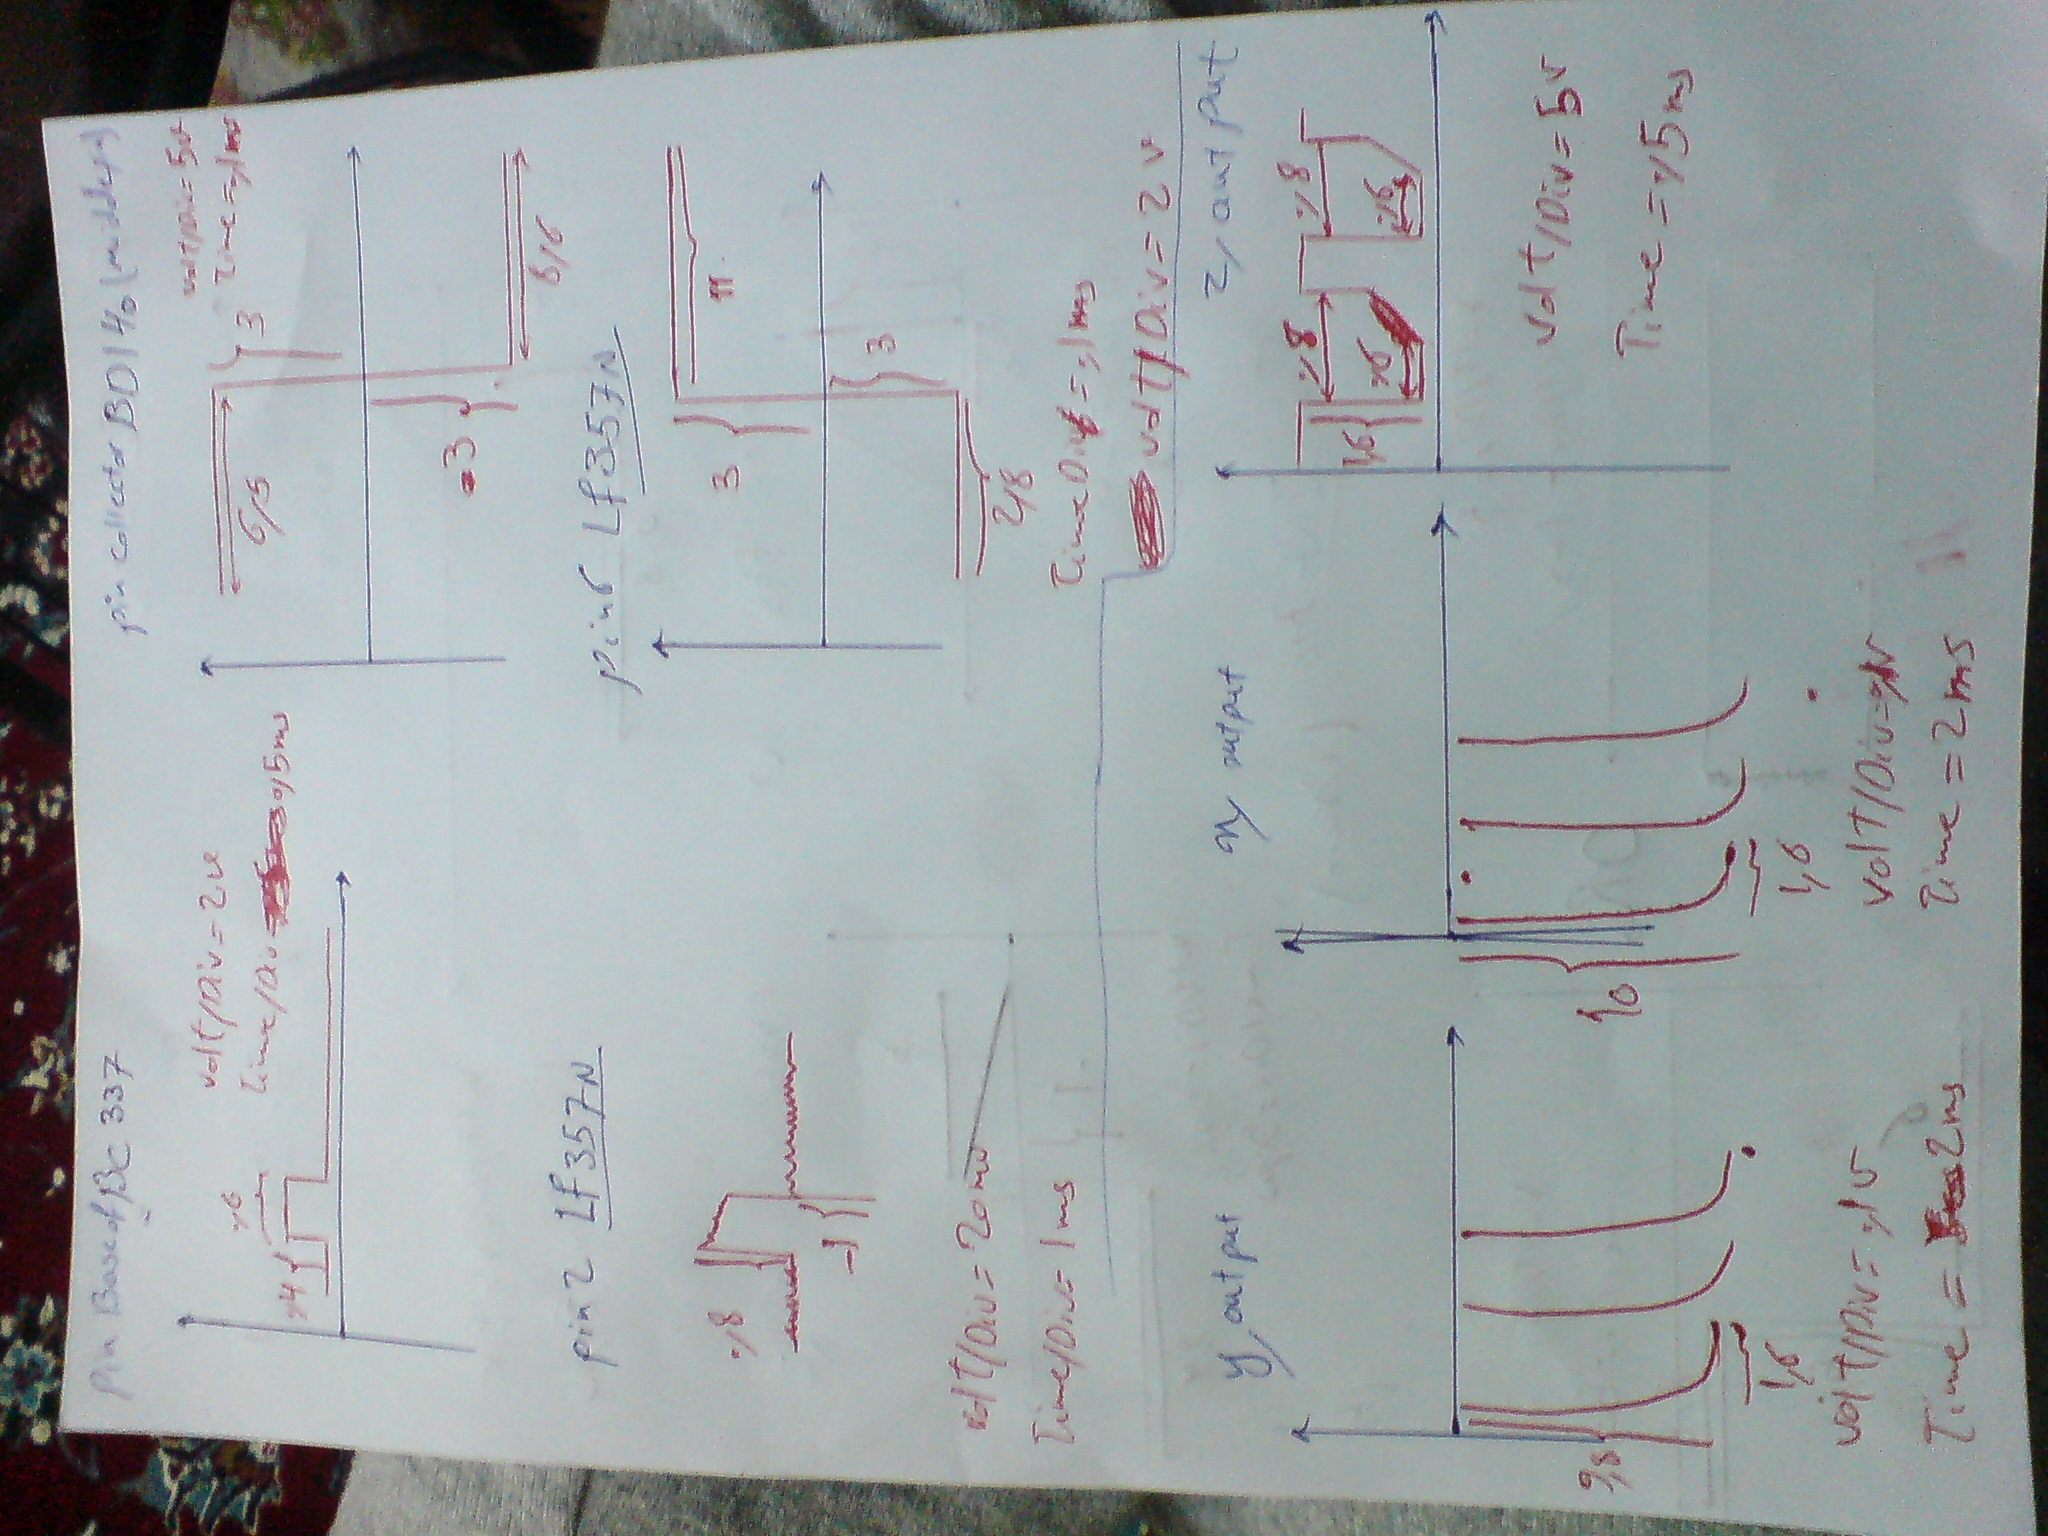 Pin Base of BC 337
volt/Div = 2v
Time/Div 0,5ms
,6
,4
pin collector BD140 (middle)
volt/Div = 5v
Time = ,1ms
3
6/5
3
6/6
pin 2 Lf357N
,8
1
volt/Div = 20mv
Time/Div = 1ms
pin 6 Lf357N
3
11
3
2/8
Time Div = ,1ms
volt/Div = 2v
y output
1,6
volt/Div = ,1v
Time = 2ms
x output
1,6
volt/Div = ,1v
Time = 2ms
z output
,8
,8
,6
,6
1,6
volt/Div = 5v
Time = ,5ms